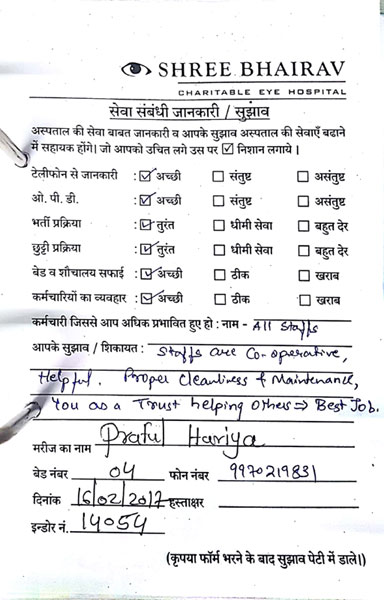 SHREE BHAIRAV
CHARITABLE EYE HOSPITAL
सेवा संबंधी जानकारी / सुझाव
अस्पताल की सेवा बाबत जानकारी व आपके सुझाव अस्पताल की सेवाएँ बढाने
में सहायक होंगे। जो आपको उचित लगे उस पर ☑ निशान लगाये ।
टेलीफोन से जानकारी : ☑ अच्छी ☐ संतुष्ट ☐ असंतुष्ट
ओ. पी. डी. : ☑ अच्छी ☐ संतुष्ट ☐ असंतुष्ट
भर्ती प्रक्रिया : ☑ तुरंत ☐ धीमी सेवा ☐ बहुत देर
छुट्टी प्रक्रिया : ☑ तुरंत ☐ धीमी सेवा ☐ बहुत देर
बेड व शौचालय सफाई : ☑ अच्छी ☐ ठीक ☐ खराब
कर्मचारियों का व्यवहार : ☑ अच्छी ☐ ठीक ☐ खराब
कर्मचारी जिससे आप अधिक प्रभावित हुए हो : नाम - All Staffs
आपके सुझाव / शिकायत : Staffs are Co-operative,
Helpful. Proper Cleanliness & Maintenance,
You as a Trust helping others ⇒ Best Job.
मरीज का नाम Praful Hariya
बेड नंबर 04 फोन नंबर 9970219831
दिनांक 16/02/2017 हस्ताक्षर
इन्डोर नं. 14054
(कृपया फॉर्म भरने के बाद सुझाव पेटी में डाले।)